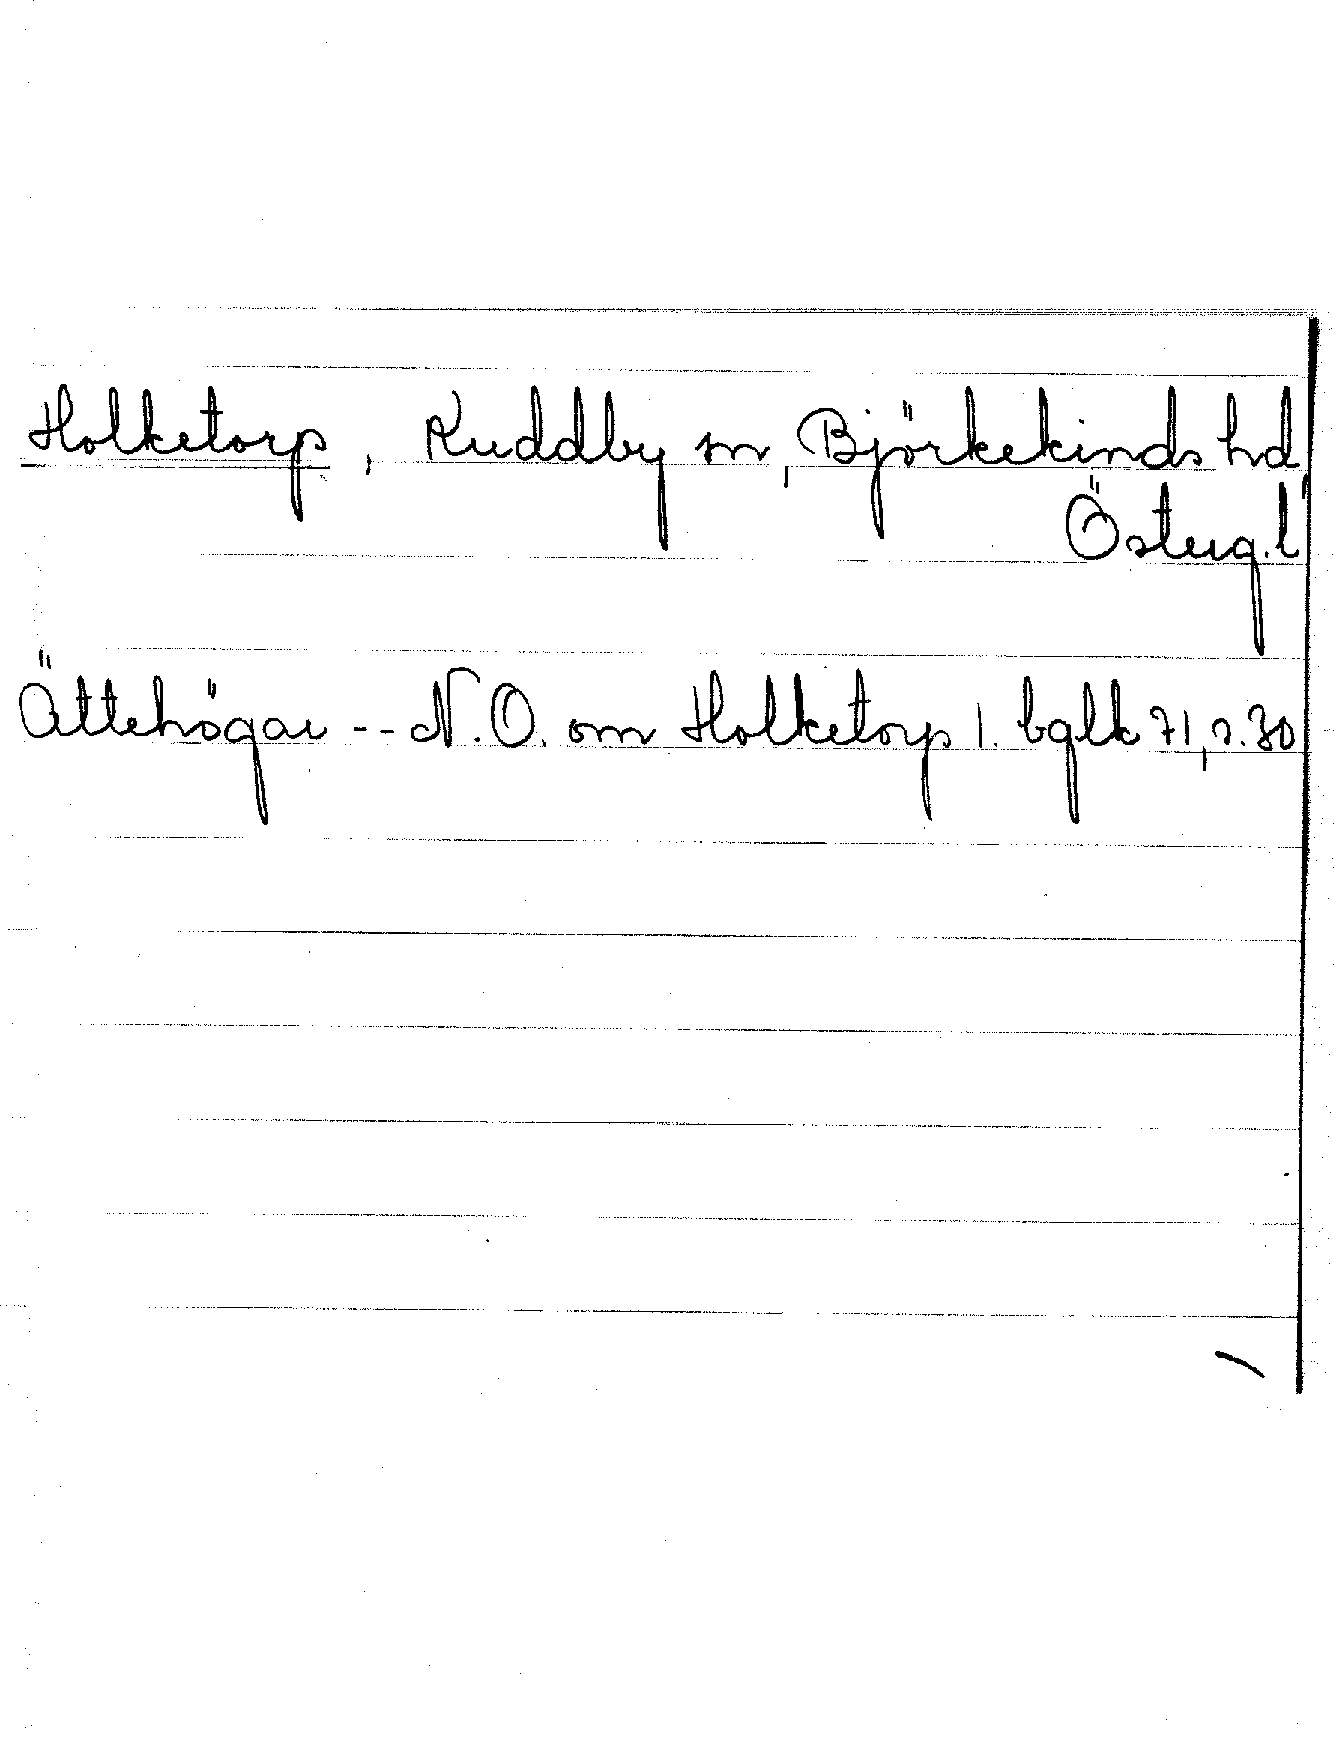 Holketorp, Kuddby sn, Björkekinds hd,
Österg.l
Ättehögar -- N.O. om Holketorp l. bglk 71, s. 30